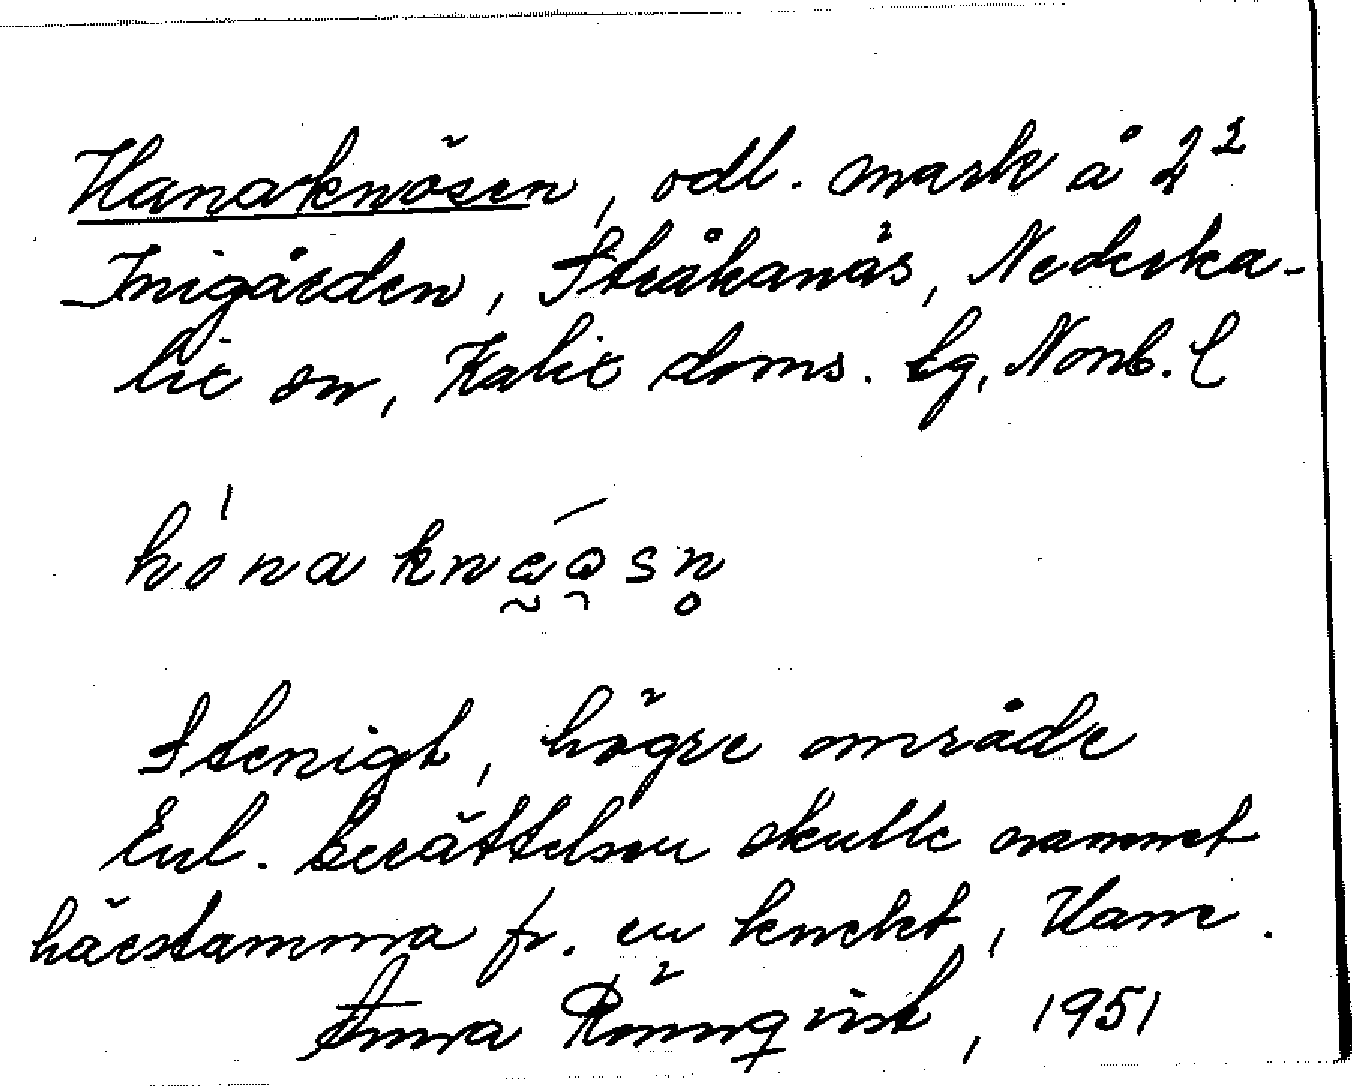 Hanaknösen, odl. mark å 2²
Inigården, Stråkanäs, Nederka-
lix sn, Kalix doms. lg, Nonb. l
hónaknäösn̥
Stenigt, högre område
Enl. berättelsen skulle namnet
härstamma fr. en knekt, Hane.
Anna Rönnqvist, 1951